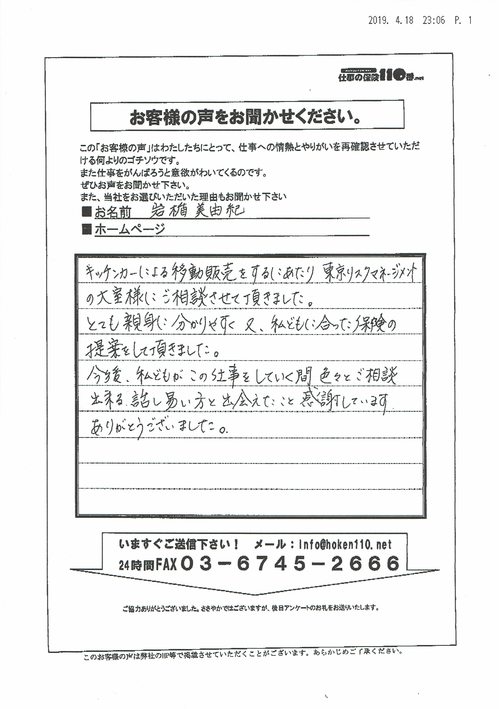 2019. 4.18 23:06 P. 1
仕事の保険110番.net
お客様の声をお聞かせください。
この「お客様の声」はわたしたちにとって、仕事への情熱とやりがいを再確認させていただ
ける何よりのゴチソウです。
また仕事をがんばろうと意欲がわいてくるのです。
ぜひお声をお聞かせ下さい。
また、当社をお選びいただいた理由もお聞かせ下さい
■お名前 岩楯 美由紀
■ホームページ
キッチンカーによる移動販売をするにあたり 東京リスクマネージメント
の大室様にご相談させて頂きました。
とても親身に分かりやすく 又、私どもに合った保険の
提案をして頂きました。
今後、私どもがこの仕事をしていく間 色々とご相談
出来る話し易い方と出会えたこと 感謝しています
ありがとうございました。
いますぐご送信下さい! メール:info@hoken110.net
24時間FAX 03-6745-2666
ご協力ありがとうございました。ささやかではございますが、後日アンケートのお礼をお送りいたします。
このお客様の声は弊社のHP等で掲載させていただくことがございます。あらかじめご了承ください。